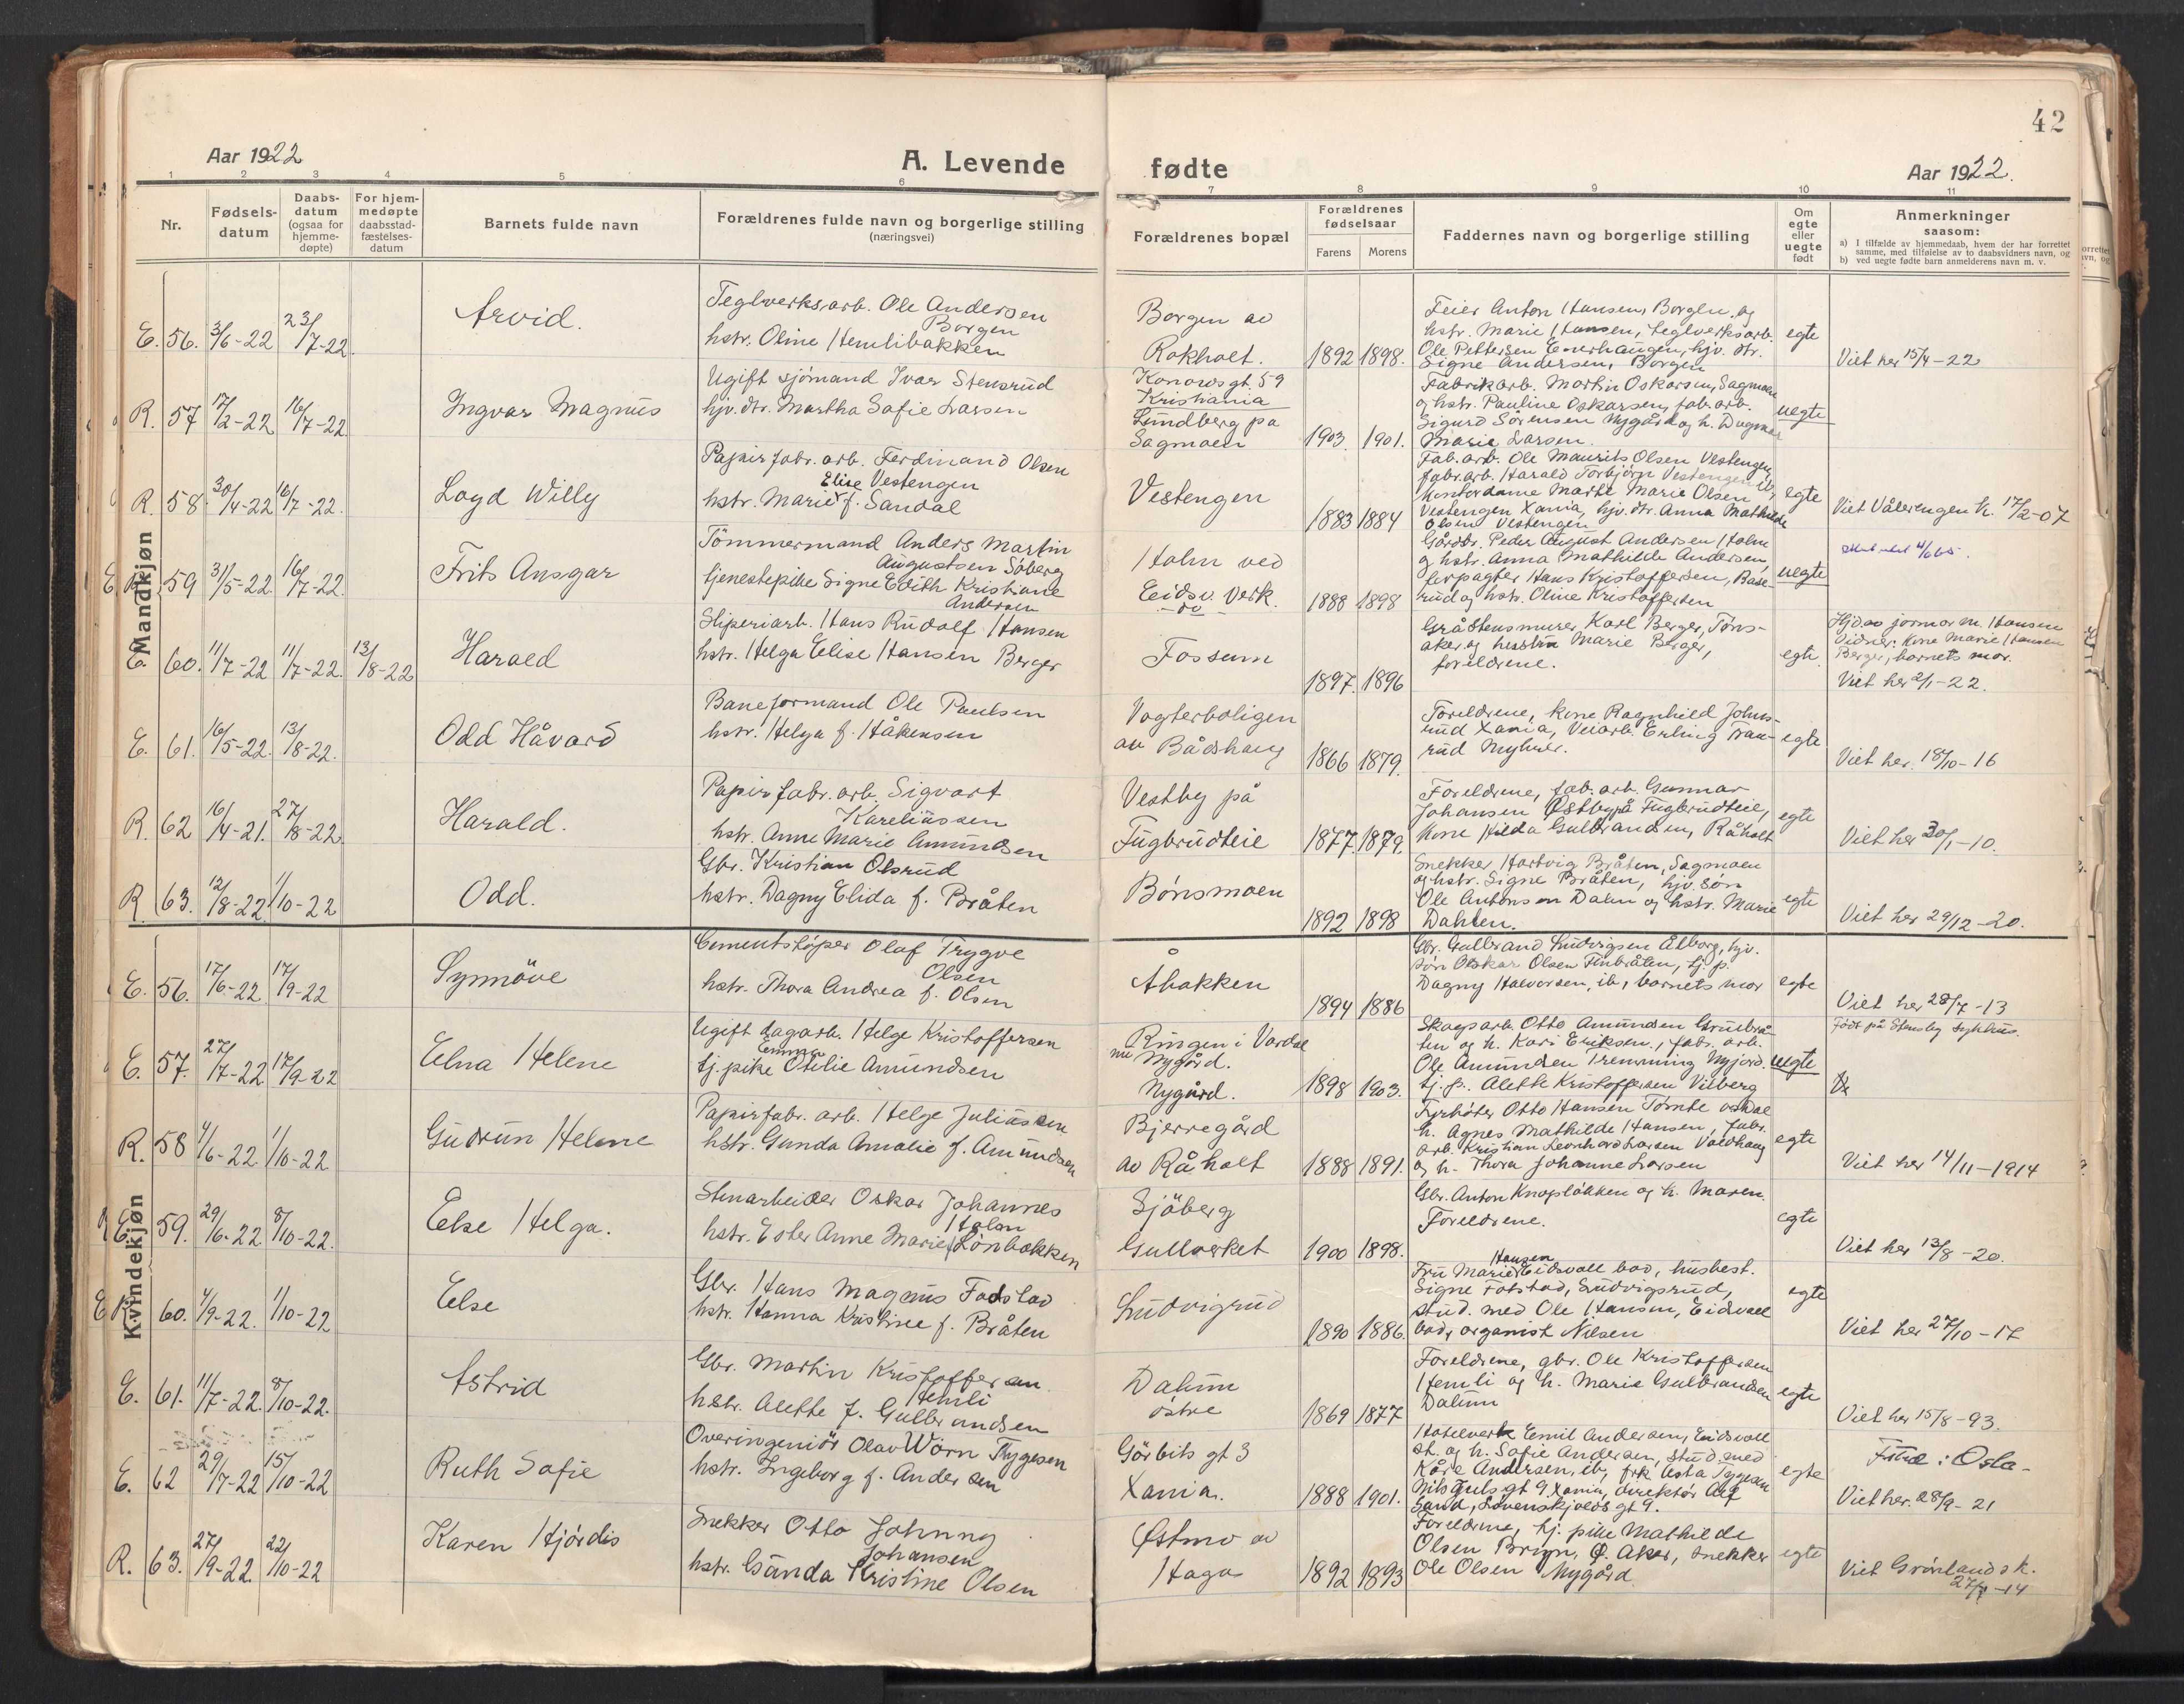 42
Aar 1922
A. Levende fødte
Aar 1922.
1 2 3 4 5 6 7 8 9 10 11
Nr.
Fødsels-
datum
Daabs-
datum
(ogsaa for
hjemme-
døpte)
For hjem-
medøpte
daabsstad-
fæstelses-
datum
Barnets fulde navn
Forældrenes fulde navn og borgerlige stilling
(næringsvei)
Forældrenes bopæl
Forældrenes
fødselsaar
Farens Morens
Faddernes navn og borgerlige stilling
Om
egte
eller
uegte
født
Anmerkninger
saasom:
a) I tilfælde av hjemmedaab, hvem der har forrettet
samme, med tilføielse av to daabsvidners navn, og
b) ved uegte fødte barn anmelderens navn m. v.
Mandkjøn
E. 56. 3/6-22 23/7-22.
Arvid.
Teglverksarb. Ole Andersen
Borgen
hstr. Oline Hemlibakken
Borgen av
Rokholt.
1892 1898.
Feier Anton Hansen, Borgen, og
hstr. Marie Hansen, teglverksarb.
Ole Pettersen Enerhaugen, hjv. dtr.
Signe Andersen, Borgen
egte
Viet her 15/4-22
R. 57 17/2-22 16/7-22
Ingvar Magnus
Ugift sjömand Ivar Stensrud
hjv. dtr. Martha Sofie Larsen
Konowsgt. 59
Kristiania
Lundberg på
Sagmoen
1903. 1901.
Fabrikarb. Martin Oskarsen, Sagmoen
og hstr. Pauline Oskarsen, fab. arb.
Sigurd Sörensen Nygård og h. Dagmar
Marie Larsen.
uegte
R. 58. 30/4-22 16/7-22.
Loyd Willy
Papirfabr. arb. Ferdinand Olsen
Elise Vestengen
hstr. Marie f. Sandal
Vestengen
1883 1884
Fab. arb. Ole Maurits Olsen Vestengen,
fabr. arb. Harald Torbjörn Vestengen ib,
Kontordame Marthe Marie Olsen
Vestengen Xania, hjv. dtr. Anna Mathilde
Olsen Vestengen
egte
Viet Vålerengen k. 17/2-07
E. R. 59 31/5-22 16/7-22
Frits Ansgar
Tömmermand Anders Martin
Augustsen Söberg
tjenestepike Signe Edith Kristiane
Andersen
Holm ved
Eidsv. Verk.
- do -
1888 1898
Gårdbr. Peder August Andersen Holm
og hstr. Anna Mathilde Andersen,
forpagter Hans Kristoffersen, Base-
rud og hstr. Oline Kristoffersen
uegte
E. 60. 11/7-22 11/7-22. 13/8-22
Harald
Sliperiarb. Hans Rudolf Hansen
hstr. Helga Elise Hansen Berger
Fossum
1897. 1896
Gråstensmurer Karl Berger, Töns-
aker og hustru Marie Berger,
foreldrene.
egte.
Hjdav jormor M. Hansen
Vidner: Kone Marie Hansen
Berger, barnets mor.
Viet her 2/1-22.
E. 61. 16/5-22. 13/8-22.
Odd Håvard
Baneformand Ole Paulsen
hstr. Helga f. Håkensen
Vogterboligen
av Bådshaug
1866 1879.
Foreldrene, kone Ragnhild Johns-
rud Xania, Veiarb. Erling Tran-
rud Myhrer.
egte
Viet her. 18/10-16
R. 62 16/4-21. 27/8-22.
Harald.
Papirfabr. arb. Sigvart
Kareliussen
hstr. Anne Marie Amundsen
Vestby på
Fugbrudteie
1877. 1879.
Foreldrene, fab. arb. Gunnar
Johansen Østby på Fugbrudteie,
Kone Hilda Gulbrandsen, Råholt
egte
Viet her 30/1-10.
R. 63. 12/8-22. 1/10-22
Odd.
Gbr. Kristian Olsrud
hstr. Dagny Elida f. Bråten
Bönsmoen
1892 1898
Snekker Hartvig Bråten, Sagmoen
og hstr. Signe Bråten, hjv. sön
Ole Antonsen Dalen og hstr. Marie
Dahlen.
egte
Viet her 29/12-20.
Kvindekjøn
E. 56. 17/6-22 17/9-22
Synnöve
Cementstöper Olaf Trygve
Olsen
hstr. Thora Andrea f. Olsen
Åbakken
1894 1886
Gbr. Gulbrand Ludvigsen Elborg, hjv.
sön Oskar Olsen Finbråten, tj. p.
Dagny Halvorsen, ib, barnets mor
egte
Viet her 28/7-13
E. 57. 27/7-22 17/9-22
Elna Helene
Ugift dagarb. Helge Kristoffersen
Emma
tj. pike Otilie Amundsen
Ringen i Vardal
nu Nygård.
Nygård.
1898 1903.
Skogsarb. Otto Amundsen Grusbrå-
ten og h. Kari Eriksen, fabr. arb.
Ole Amundsen Tremming Nyjord.
tj. p. Alethe Kristoffersen Vilberg
uegte
Född på Stensby sykehus.
R. 58 4/6-22. 1/10-22
Gudrun Helene
Papirfabr. arb. Helge Juliussen
hstr. Gunda Amalie f. Amundsen
Bjerregård
av Råholt
1888 1891.
Fyrböter Otto Hansen Tömte
h. Agnes Mathilde Hansen, fabr.
arb. Kristian Leonhard Larsen
og h. Thora Johanne Larsen
egte
Viet her 14/11-1914
R E. 59. 29/6-22 8/10-22.
Else Helga.
Stenarbeider Oskar Johannes
Holm
hstr. Ester Anne Marie f. Lönbakken
Sjöberg
Gullverket
1900 1898.
Gbr. Anton Knapslökken og h. Maren.
Foreldrene.
egte
Viet her 13/8-20.
E R. 60. 4/9-22. 1/10-22
Else
Gbr. Hans Magnus Fodstad
hstr. Hanna Kristine f. Bråten
Ludvigrud
1890 1886.
Hansen
Fru Marie Eidsvoll bad, husbest.
Signe Fotstad, Ludvigsrud,
stud. med Ole Hansen, Eidsvoll
bad, organist Nilsen
egte
Viet her 27/10-17
E. 61. 11/7-22. 8/10-22.
Astrid
Gbr. Martin Kristoffersen
Hemli
hstr. Alethe f. Gulbrandsen
Dalum
östre
1869 1877
Foreldrene, gbr. Ole Kristoffersen
Hemli og h. Marie Gulbrandsen
Dalum
egte
Viet her 15/8-93.
E. 62 29/7-22 15/10-22
Ruth Sofie
Overingeniör Olav Wörn Tygesen
hstr. Ingeborg f. Andersen
Görbits gt 3
Xania.
1888 1901.
Hotelverk Emil Andersen, Eidsvoll
st. og h. Sofie Andersen, stud. med
Kåre Andersen, ib, frk Asta Tygesen
Nils Juels gt 9 Xania, direktör Alf
Sand, Lövenskjolds gt 9.
egte
Oslo-
Viet her. 28/9-21
R. 63. 27/9-22. 22/10-22
Karen Hjördis
Snekker Otto Johnny
Johansen
hstr. Gunda Kristine Olsen
Østmo av
Haga
1892 1893
Foreldrene, tj. pike Mathilde
Olsen Bryn, Ø. Aker, snekker
Ole Olsen Nygård.
egte
Viet Grönland sk.
27/9-14